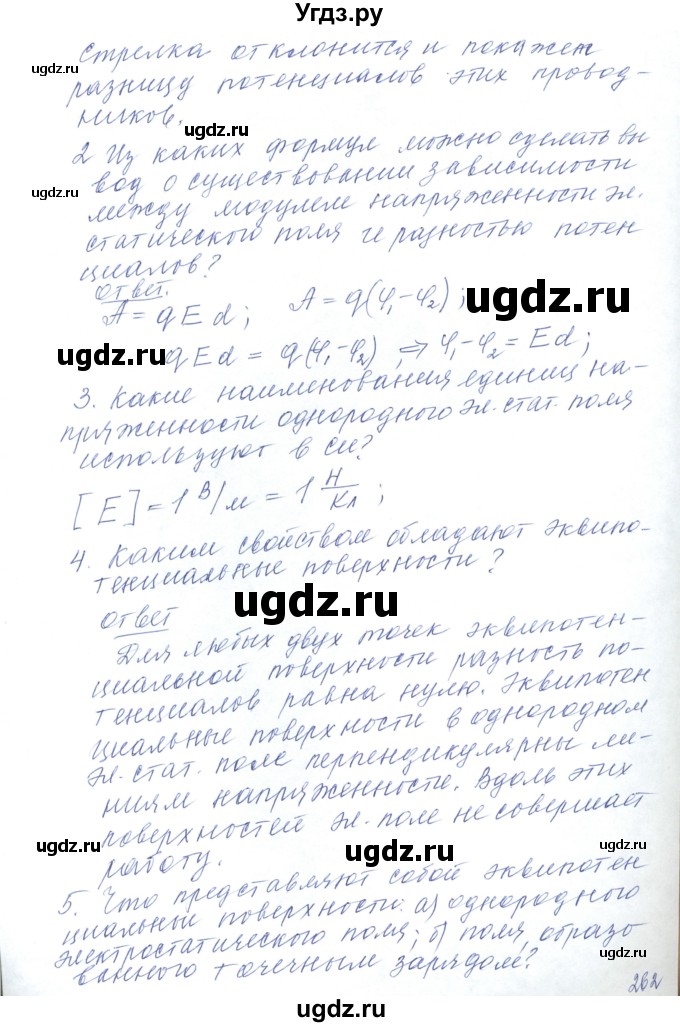 Угдз.ру
стрелка отклонится и покажет
разницу потенциалов этих провод-
ников.
2 Из каких формул можно сделать вы
вод о существовании зависимости
между модулем напряженности эл.
статического поля и разностью потен
циалов?
Ответ.
A = qEd; A = q(φ₁-φ₂);
qEd = q(φ₁-φ₂) ⇒ φ₁-φ₂ = Ed;
3. Какие наименования единиц на-
пряженности однородного эл. стат. поля
используют в СИ?
[E] = 1 В/м = 1 Н/Кл;
4. Каким свойством обладают эквипо-
тенциальные поверхности?
Ответ
Для любых двух точек эквипотен-
циальной поверхности разность по-
тенциалов равна нулю. Эквипотен
циальные поверхности в однородном
эл. стат. поле перпендикулярны ли-
ниям напряженности. Вдоль этих
поверхностей эл. поле не совершает
работу.
5. Что представляют собой эквипотен
циальный поверхности: а) однородного
электростатического поля; б) поля, образо
ванного точечным зарядом?
262
ugdz.ru
ugdz.ru
ugdz.ru
ugdz.ru
ugdz.ru
ugdz.ru
ugdz.ru
ugdz.ru
ugdz.ru
ugdz.ru
ugdz.ru
ugdz.ru